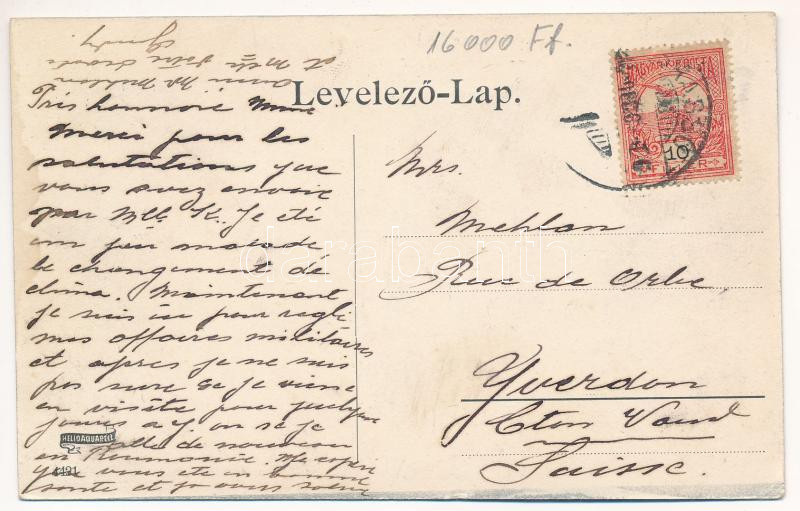 16000 Ft.
Levelező-Lap.
Très honnoré Mme
Merci pour les
salutations que
vous avez envoié
par Mlle K. Je été
un peu malade
le changement dé
clima. Maintenant
je suis ici pour regli
mes affaires militaires
et apres je ne suis
pas sure se je viens
en visite pour quelque
jours a Y. on se je
de nouveau
en Roumanie. Me
que vous ete en bonne
sante et je vous salue
Mrs.
Mehlan
Rue de Orbe
Yverdon
Cton Vaud
Suisse.
MAGYAR KIR. POSTA
10
FILLÉR
HELIOAQUARELL
4491
darabanth